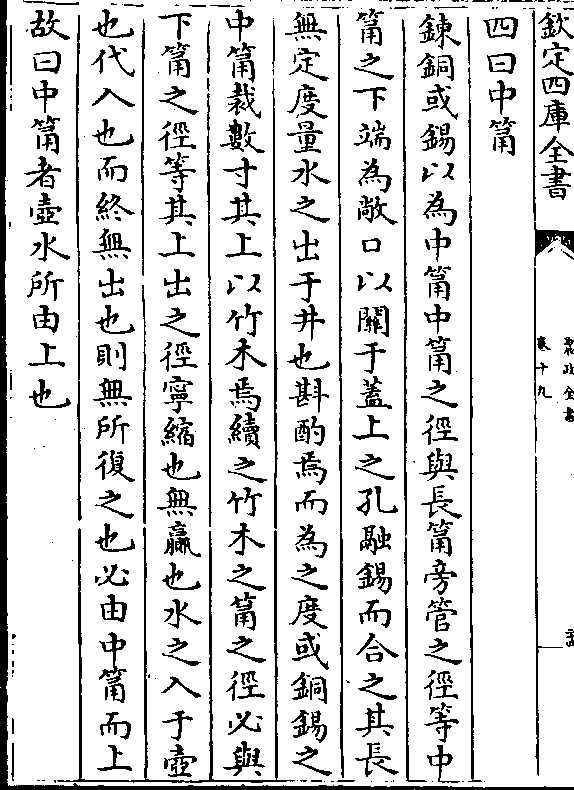 欽定四庫全書
農政全書
卷十九
四曰中筩
鍊銅或錫以為中筩中筩之徑與長筩旁管之徑等中
筩之下端為敞口以關于蓋上之孔融錫而合之其長
無定度量水之出于井也斟酌焉而為之度或銅錫之
中筩裁數寸其上以竹木焉續之竹木之筩之徑必與
下筩之徑等其上出之徑寧縮也無贏也水之入于壺
也代入也而終無出也則無所復之也必由中筩而上
故曰中筩者壺水所由上也